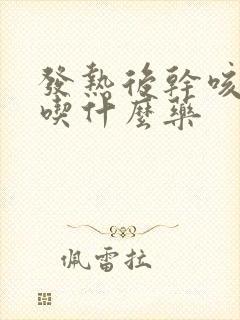 發熱後幹咳
喫什麼藥
佩雷拉